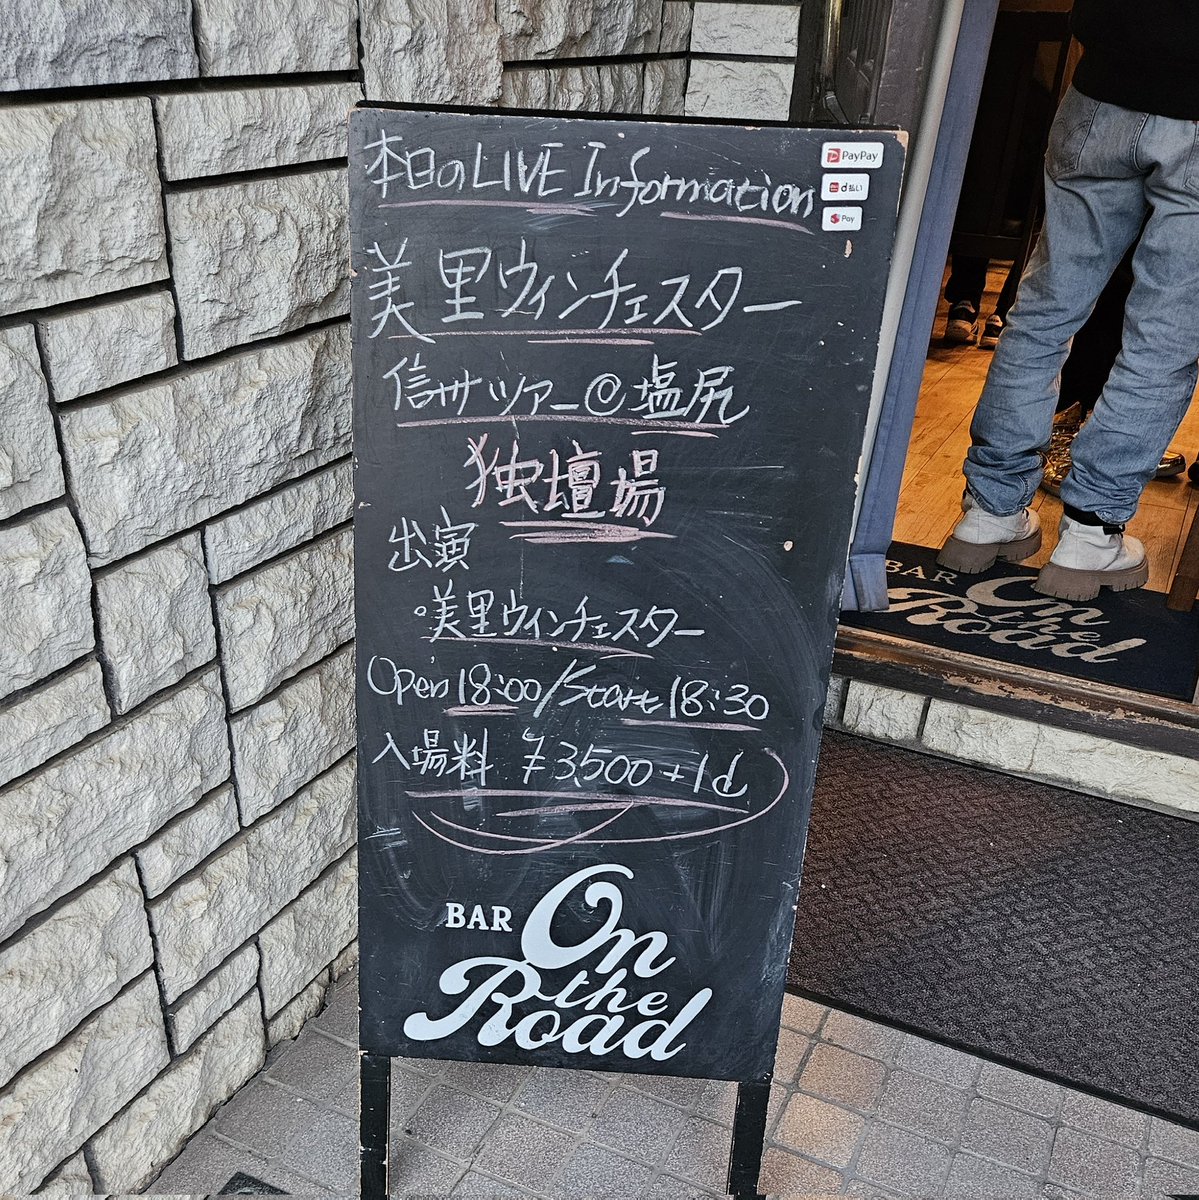 本日のLIVE Information
PayPay
d払い
Pay
美里ウィンチェスター
信州ツアー@塩尻
独壇場
出演
・美里ウィンチェスター
Open 18:00/Start 18:30
入場料 ¥3,500+1d
BAR On
the
Road
BAR On
the
Road